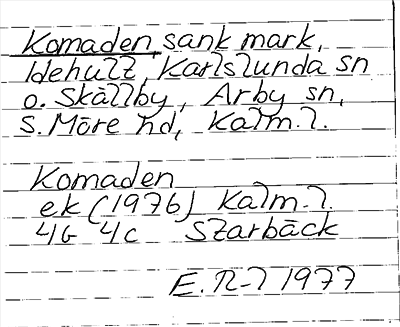 Komaden, sank mark,
Idehult, Karlslunda sn
o. Skällby, Arby sn,
S. Möre hd, Kalm. l.
Komaden
ek (1976) Kalm. l.
4G 4c Starbäck
E. N-l 1977